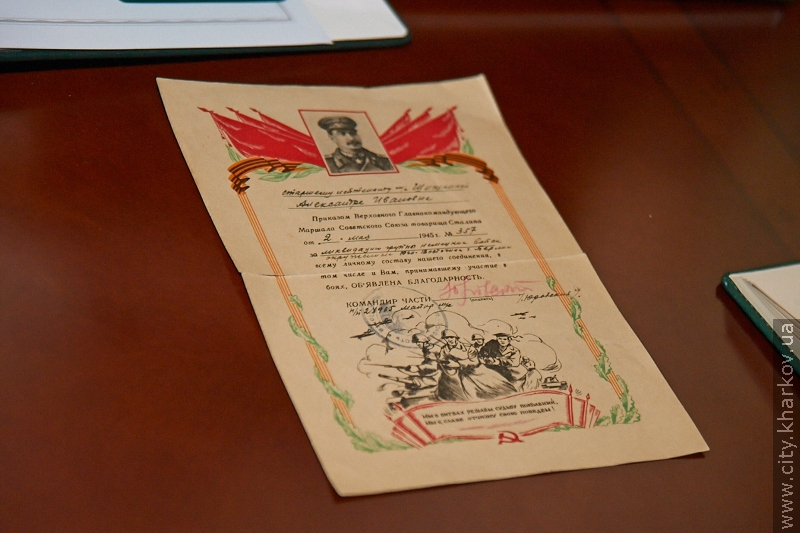 старшему лейтенанту м/с
Александре Ивановне
Приказом Верховного Главнокомандующего
Маршала Советского Союза товарища Сталина
от 2 мая 1945 г. № 357
за ликвидацию группы немецких войск
окружённых юго-восточнее г. Берлин
всему личному составу нашего соединения, в
том числе и Вам, принимавшему участие в
боях, ОБ'ЯВЛЕНА БЛАГОДАРНОСТЬ.
КОМАНДИР ЧАСТИ
майор
МЫ В БИТВАХ РЕШАЕМ СУДЬБУ ПОКОЛЕНИЙ,
МЫ К СЛАВЕ ОТЧИЗНУ СВОЮ ПОВЕДЁМ!
www.city.kharkov.ua